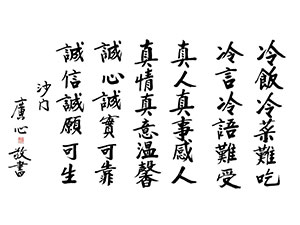 冷飯冷菜難吃
冷言冷語難受
真人真事感人
真情真意溫馨
誠心誠實可靠
誠信誠願可生
沙門
廣心敬書